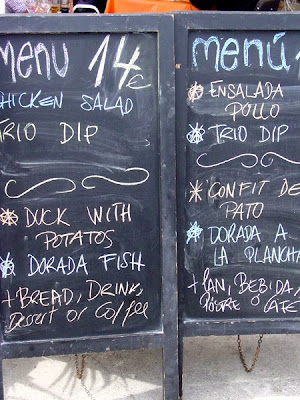 MENU 14 €
CHICKEN SALAD
TRIO DIP
DUCK WITH
POTATOS
DORADA FISH
+ BREAD, DRINK,
Dessert or Coffee
menú
ENSALADA
POLLO
TRIO DIP
CONFIT DE
PATO
DORADA A
LA PLANCHA
+ PAN, BEBIDA,
POSTRE O CAFE